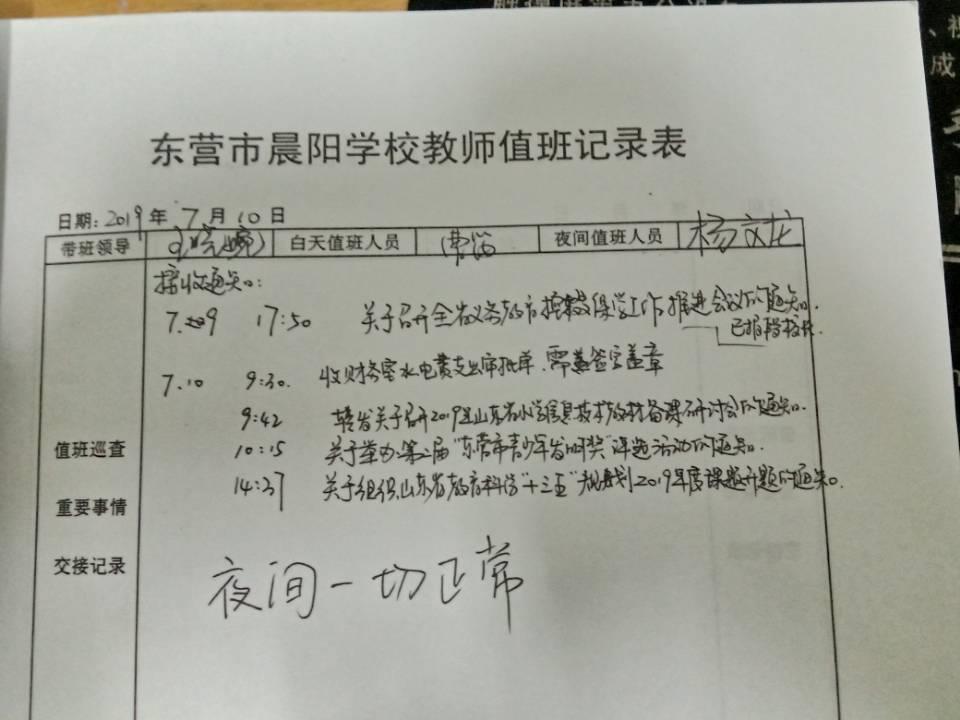 东营市晨阳学校教师值班记录表
日期:2019年 7 月 10 日
带班领导 白天值班人员 夜间值班人员 杨文龙
接收通知:
7.9 17:50 关于召开全省义务教育控辍保学工作推进会议的通知.
7.10 9:30. 收财务室水电费支出审批单、需签字盖章
9:42 转发关于召开2019年山东省小学信息技术教材备课研讨会的通知.
值班巡查 10:15 关于举办第二届“东营市青少年发明奖”评选活动的通知.
14:37 关于组织山东省教育科学“十三五”规划2019年度课题开题的通知.
重要事情
交接记录
夜间一切正常